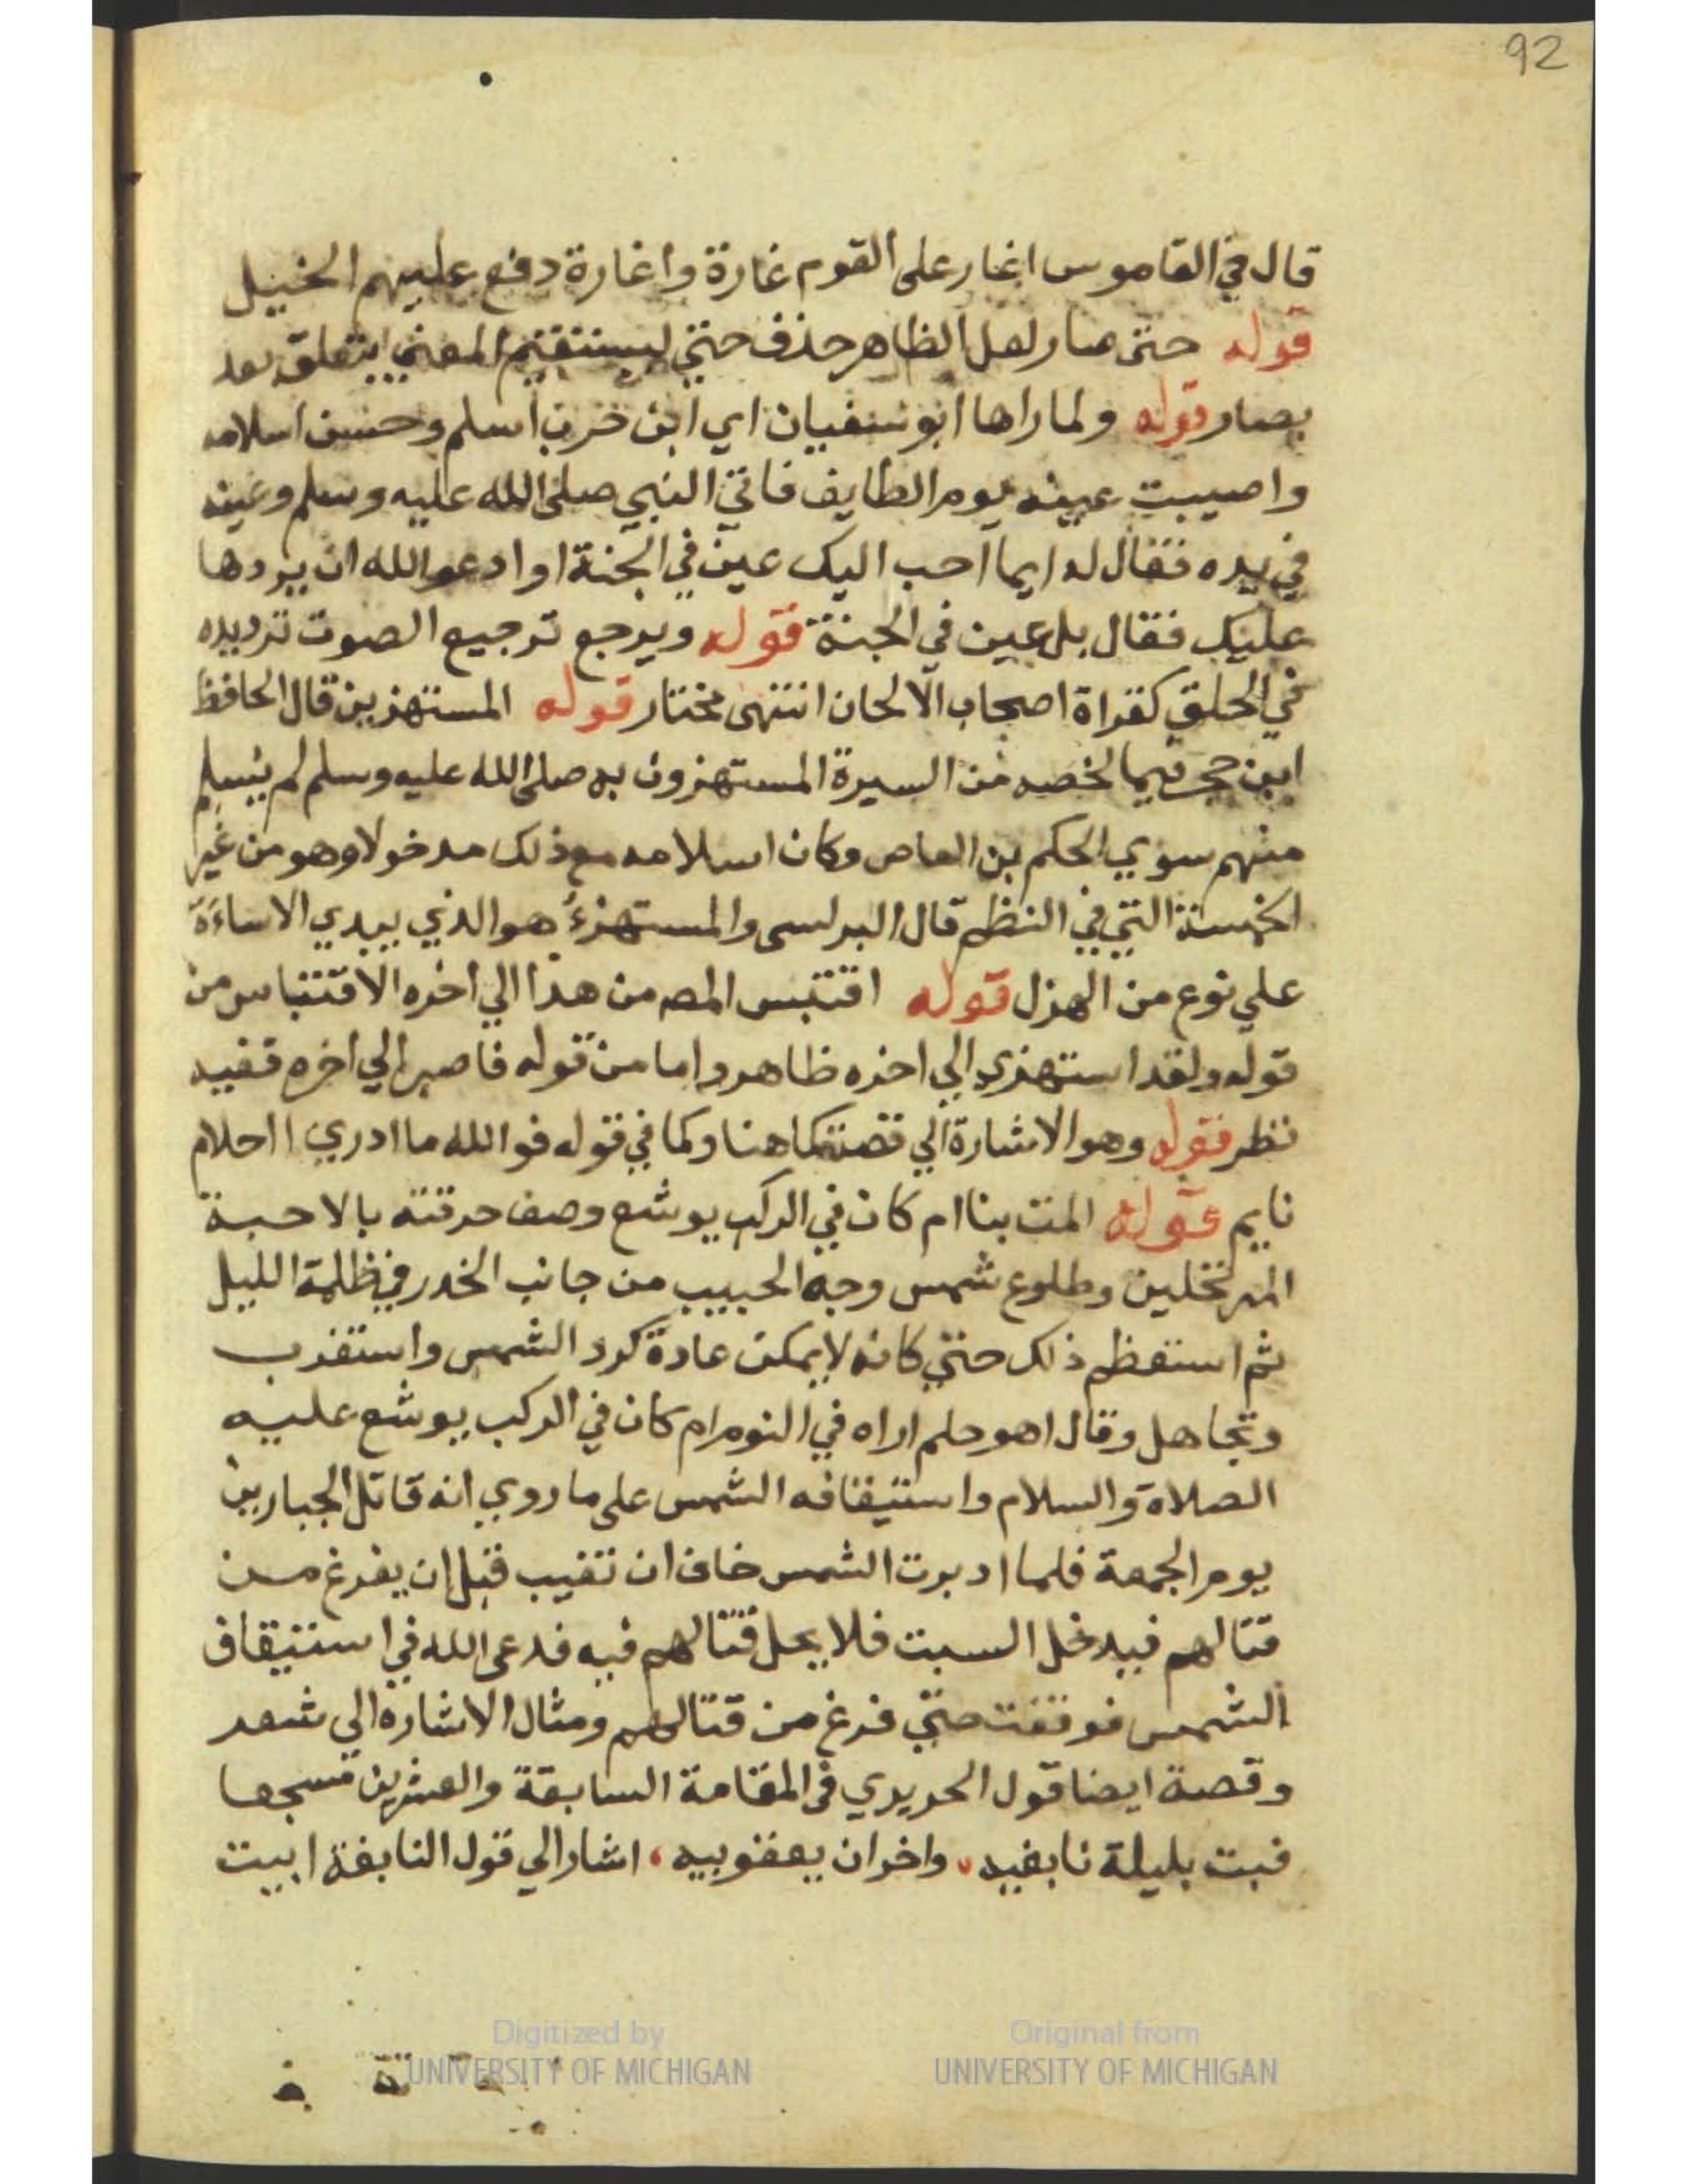 92
قال في القاموس اغار على القوم غارة واغارة دفع عليهم الخيل
قوله حتى صار لعل الظاهر حذف حتى ليستقيم المعنى يتعلق بعد
بصار قوله ولما راها ابو سفيان اي ابن حرب اسلم وحسن اسلامه
واصيبت عينه يوم الطايف فاتى النبي صلى الله عليه وسلم وعينه
في يده فقال له ايما احب اليك عين في الجنة او ادعو الله ان يردها
عليك فقال بل عين في الجنة قوله ويرجع ترجيع الصوت ترديده
في الحلق كقراة اصحاب الالحان انتهى مختار قوله المستهزين قال الحافظ
ابن حجر فيما لخصه من السيرة المستهزون به صلى الله عليه وسلم لم يسلم
منهم سوي الحكم بن العاص وكان اسلامه مع ذلك مدخولا وهو من غير
الخمسة التي في النظم قال البرلسى والمستهزءُ هو الذي يبدي الاساءة
علي نوع من الهزل قوله اقتبس المصه من هذا الي اخره الاقتباس من
قوله ولقد استهزي الي اخره ظاهر واما من قوله فاصبر الي اخره ففيه
نظر قوله وهو الاشارة الي قصة كما هنا وكما في قوله فوالله ما ادري ااحلام
نايم قوله المت بنا ام كان في الركب يوشع وصف حرقته بالاحبة
المرتحلين وطلوع شمس وجه الحبيب من جانب الخدر في ظلمة الليل
ثم استعظم ذلك حتي كانه لا يمكن عادة كرد الشمس واستغرب
وتجاهل وقال اهو حلم اراه في النوم ام كان في الركب يوشع عليه
الصلاة والسلام واستيقافه الشمس على ما روي انه قاتل الجبارين
يوم الجمعة فلما ادبرت الشمس خاف ان تغيب قبل ان يفرغ من
قتالهم فيدخل السبت فلا يحل قتالهم فيه فدعى الله في استيقاف
الشمس فوقفت حتي فرغ من قتالهم ومثال الاشارة الي شعر
وقصة ايضا قول الحريري في المقامة السابعة والعشرين
فبت بليلة نابغيه، واحزان يعقوبيه، اشار الي قول النابغة ابيت
Digitized by
UNIVERSITY OF MICHIGAN
Original from
UNIVERSITY OF MICHIGAN